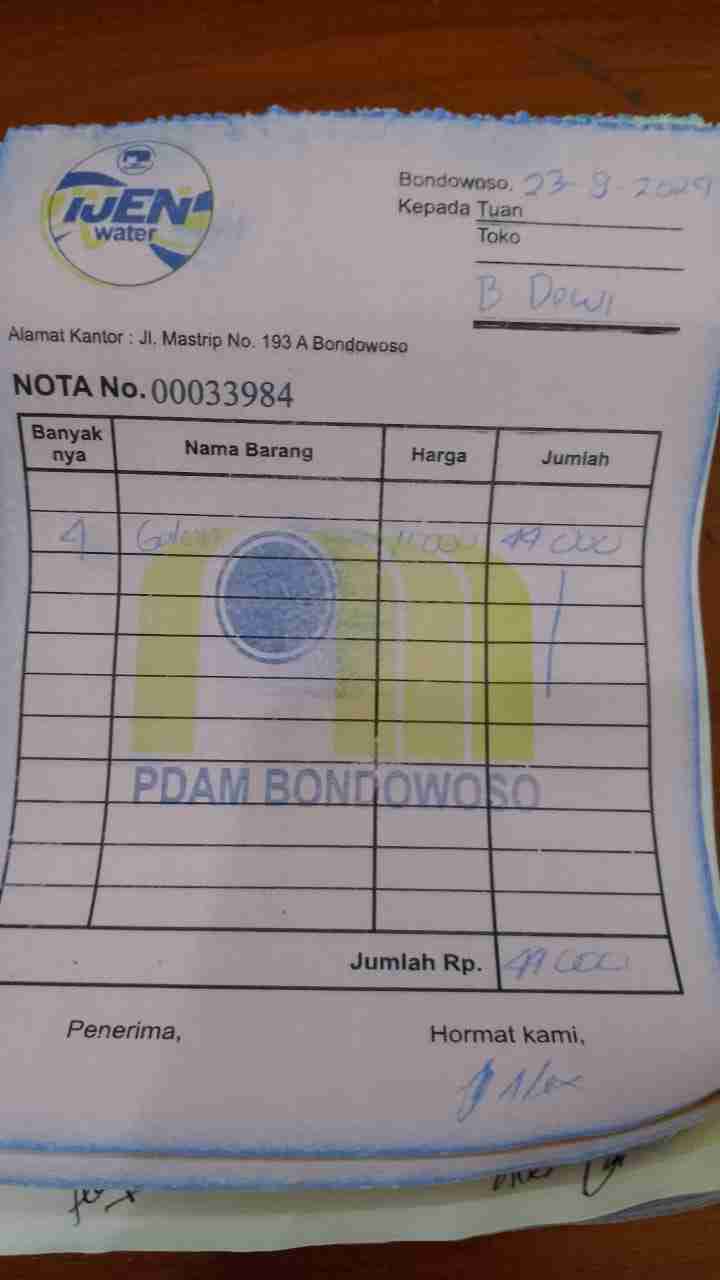 IJEN
water
Bondowoso, 23-9-2024
Kepada Tuan
Toko
B Dewi
Alamat Kantor : Jl. Mastrip No. 193 A Bondowoso
NOTA No. 00033984
Banyak nya Nama Barang Harga Jumlah
4 Galon 11 000 44 000
PDAM BONDOWOSO
Jumlah Rp. 44 000
Penerima, Hormat kami,